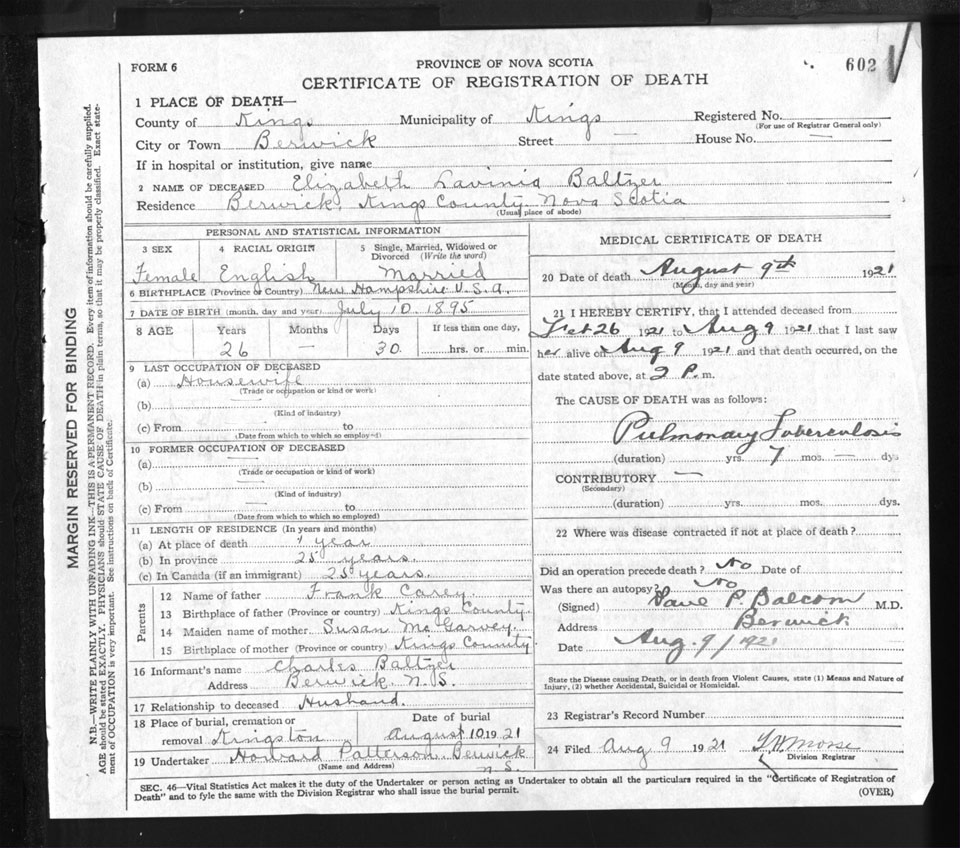 FORM 6
PROVINCE OF NOVA SCOTIA
602
CERTIFICATE OF REGISTRATION OF DEATH
1 PLACE OF DEATH—
County of Kings Municipality of Kings Registered No.
(For use of Registrar General only)
City or Town Berwick Street — House No. —
If in hospital or institution, give name
2 NAME OF DECEASED Elizabeth Lavinia Baltzer
Residence Berwick, Kings County Nova Scotia
(Usual place of abode)
PERSONAL AND STATISTICAL INFORMATION
3 SEX 4 RACIAL ORIGIN 5 Single, Married, Widowed or
Divorced (Write the word)
Female English Married
6 BIRTHPLACE (Province or Country) New Hampshire U.S.A.
7 DATE OF BIRTH (month, day and year) July 10. 1895
8 AGE Years Months Days If less than one day,
26 — 30. hrs. or min.
9 LAST OCCUPATION OF DECEASED
(a) Housewife
(Trade or occupation or kind or work)
(b)
(Kind of industry)
(c) From
(Date from which to which so employed)
10 FORMER OCCUPATION OF DECEASED
(a) —
(Trade or occupation or kind of work)
(b) —
(Kind of industry)
(c) From —
(Date from which to which so employed)
11 LENGTH OF RESIDENCE (In years and months)
(a) At place of death 1 year
(b) In province 25 years.
(c) In Canada (if an immigrant) 25 years.
Parents
12 Name of father Frank Carey
13 Birthplace of father (Province or country) Kings County.
14 Maiden name of mother Susan McGarvey.
15 Birthplace of mother (Province or country) Kings County
16 Informant's name Charles Baltzer
Address Berwick N.S.
17 Relationship to deceased Husband.
18 Place of burial, cremation or Date of burial
removal Kingston August 10 1921
19 Undertaker Howard Patterson. Berwick
(Name and Address) N.S.
MEDICAL CERTIFICATE OF DEATH
20 Date of death August 9th 1921
(Month, day and year)
21 I HEREBY CERTIFY, that I attended deceased from
Feb 26 1921 to Aug 9 1921 that I last saw
her alive on Aug 9 1921 and that death occurred, on the
date stated above, at 2 P. m.
The CAUSE OF DEATH was as follows:
Pulmonary Tuberculosis
(duration) yrs. 7 mos. — dys
CONTRIBUTORY —
(Secondary)
(duration) yrs. mos. dys.
22 Where was disease contracted if not at place of death?
Did an operation precede death? No Date of
Was there an autopsy? No
(Signed) P Balcom M.D.
Address Berwick
Date Aug. 9/1921
State the Disease causing Death, or in death from Violent Causes, state (1) Means and Nature of
Injury, (2) whether Accidental, Suicidal or Homicidal.
23 Registrar's Record Number
24 Filed Aug 9 1921 Morse
Division Registrar
SEC. 46—Vital Statistics Act makes it the duty of the Undertaker or person acting as Undertaker to obtain all the particulars required in the "Certificate of Registration of
Death" and to fyle the same with the Division Registrar who shall issue the burial permit.
(OVER)
MARGIN RESERVED FOR BINDING
N.B.—WRITE PLAINLY WITH UNFADING INK—THIS IS A PERMANENT RECORD. Every item of information should be carefully supplied.
AGE should be stated EXACTLY. PHYSICIANS should STATE CAUSE OF DEATH in plain terms, so that it may be properly classified. Exact state-
ment of OCCUPATION is very important. See instructions on back of Certificate.